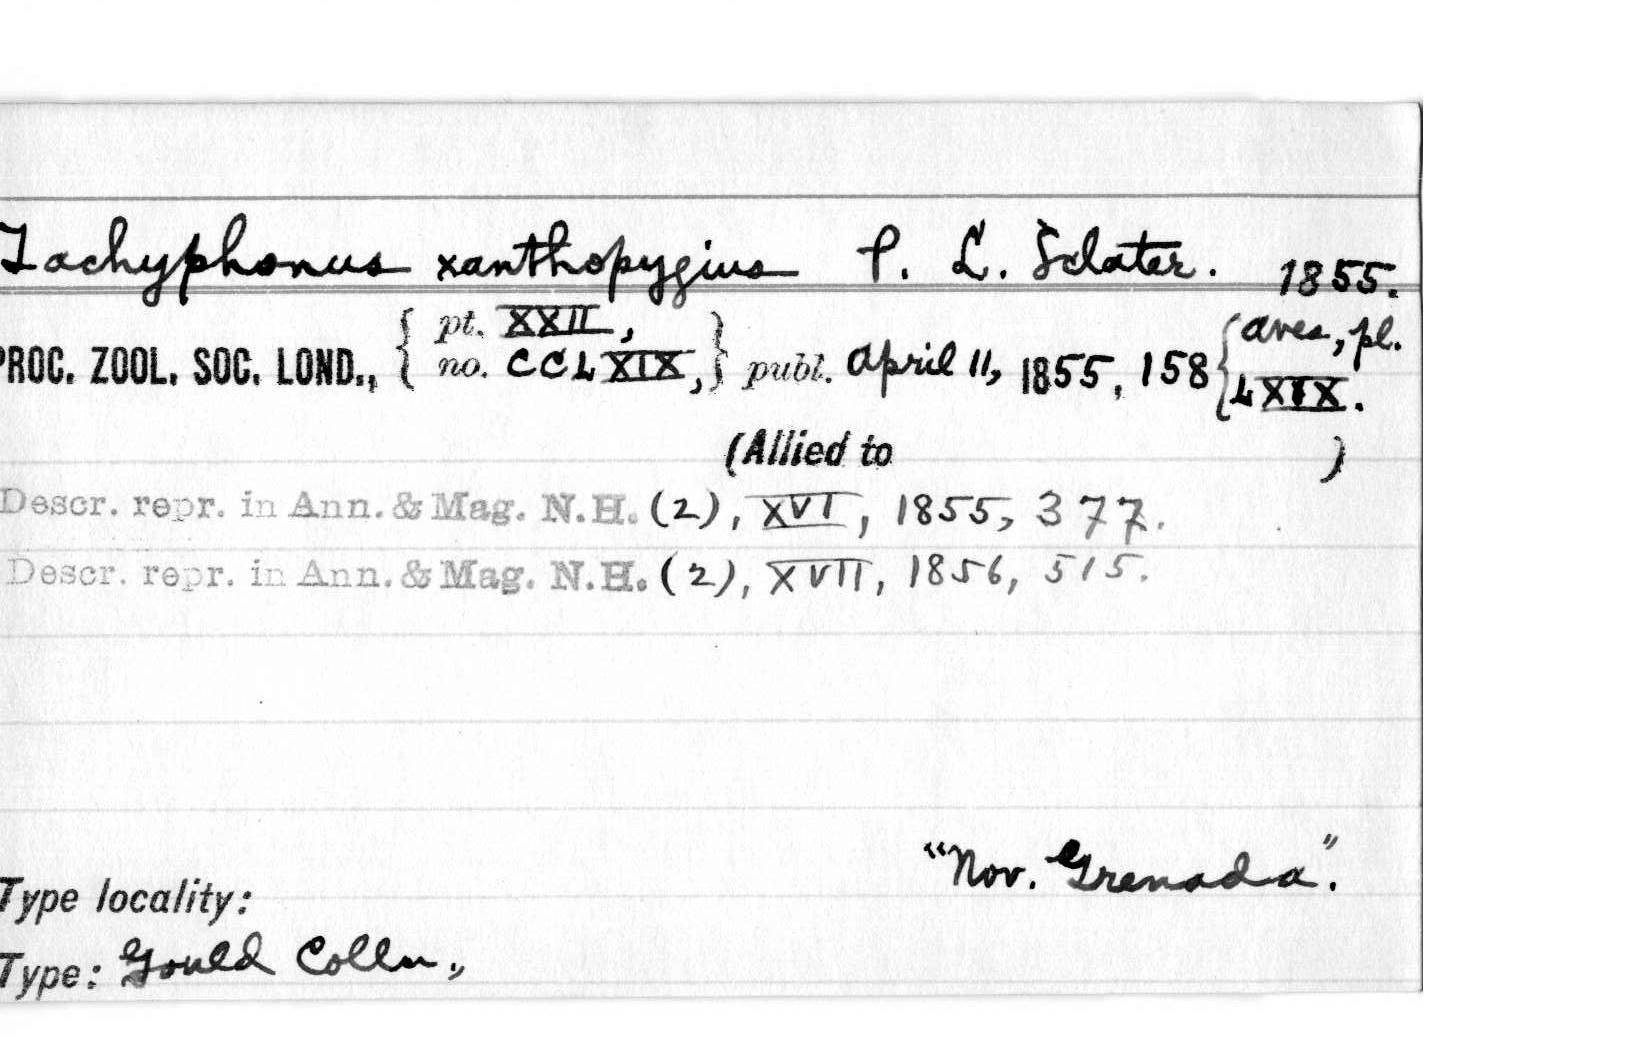 Tachyphonus xanthopygius P. L. Sclater. 1855.
PROC. ZOOL. SOC. LOND., { pt. XXII, no. CCLXIX, } publ. April 11, 1855, 158 { Aves, pl. LXIX.
(Allied to )
Descr. repr. in Ann. & Mag. N.H. (2), XVI, 1855, 377.
Descr. repr. in Ann. & Mag. N.H. (2), XVII, 1856, 515.
"Nov. Grenada".
Type locality:
Type: Gould Colln.,